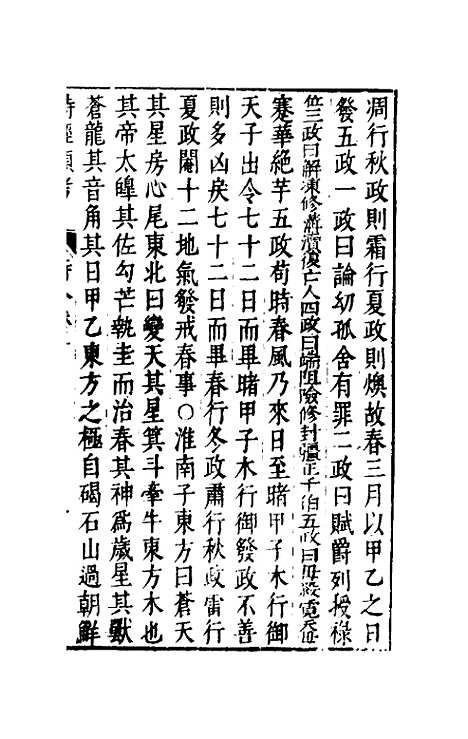 凋行秋政則霜行夏政則燠故春三月以甲乙之日
發五政一政曰論幼孤舍有罪二政曰賦爵列授祿
位三政曰解凍修溝瀆復亡人四政曰端阻險修封疆正千伯五政曰毋殺麑夭毋
蹇華絕芋五政茍時春風乃來日至睹甲子木行御
天子出令七十二日而畢睹甲子木行御發政不善
則多凶戾七十二日而畢春行冬政肅行秋政雷行
夏政閹十二地氣發戒春事○淮南子東方曰蒼天
其星房心尾東北曰變天其星箕斗牽牛東方木也
其帝太皥其佐勾芒執圭而治春其神為歲星其獸
蒼龍其音角其日甲乙東方之極自碣石山過朝鮮
詩經類考